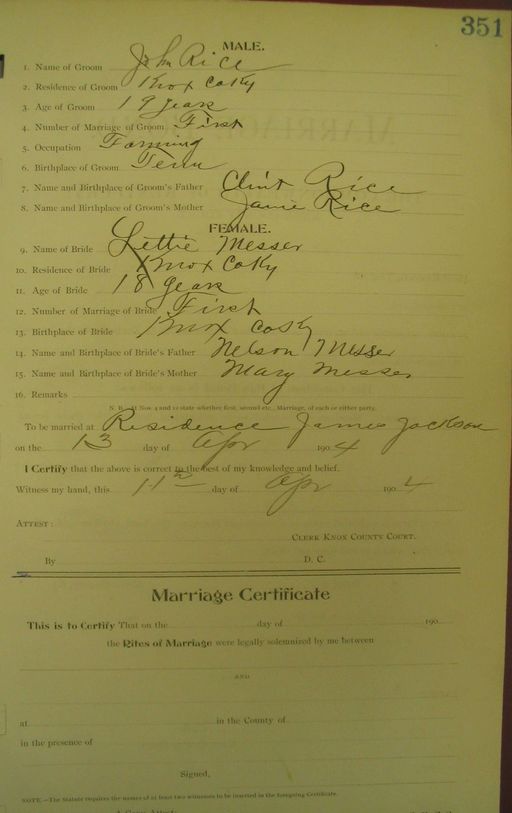 351
MALE.
1. Name of Groom John Rice
2. Residence of Groom Knox Co Ky
3. Age of Groom 19 years
4. Number of Marriage of Groom First
5. Occupation Farming
6. Birthplace of Groom Tenn
7. Name and Birthplace of Groom's Father Clint Rice
8. Name and Birthplace of Groom's Mother Janie Rice
FEMALE.
9. Name of Bride Lettie Messer
10. Residence of Bride Knox Co Ky
11. Age of Bride 18 years
12. Number of Marriage of Bride First
13. Birthplace of Bride Knox Co Ky
14. Name and Birthplace of Bride's Father Nelson Messer
15. Name and Birthplace of Bride's Mother Mary Messer
16. Remarks
N. B. At Nos. 4 and 12 state whether first, second etc., Marriage, of each or either party.
To be married at Residence James Jackson
on the 13 day of Apr 1904
I Certify that the above is correct to the best of my knowledge and belief.
Witness my hand, this 11th day of Apr 1904
ATTEST:
CLERK KNOX COUNTY COURT.
By D. C.
Marriage Certificate
This is to Certify That on the day of 190
the Rites of Marriage were legally solemnized by me between
AND
at in the County of
in the presence of
Signed,
NOTE.—The Statute requires the names of at least two witnesses to be inserted in the foregoing Certificate.